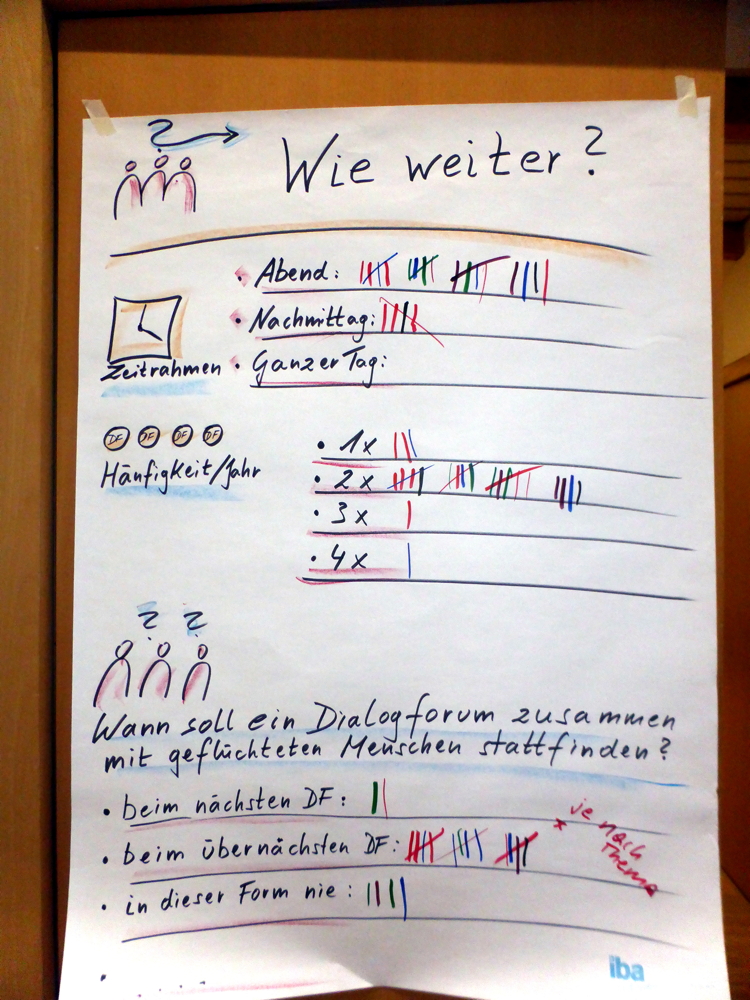 ?
Wie weiter?
• Abend:
• Nachmittag:
Zeitrahmen • Ganzer Tag:
DF DF DF DF
Häufigkeit/Jahr
• 1x
• 2x
• 3x
• 4x
? ?
Wann soll ein Dialogforum zusammen
mit geflüchteten Menschen stattfinden?
• beim nächsten DF:
• beim übernächsten DF:
* je nach
Thema
• in dieser Form nie:
iba